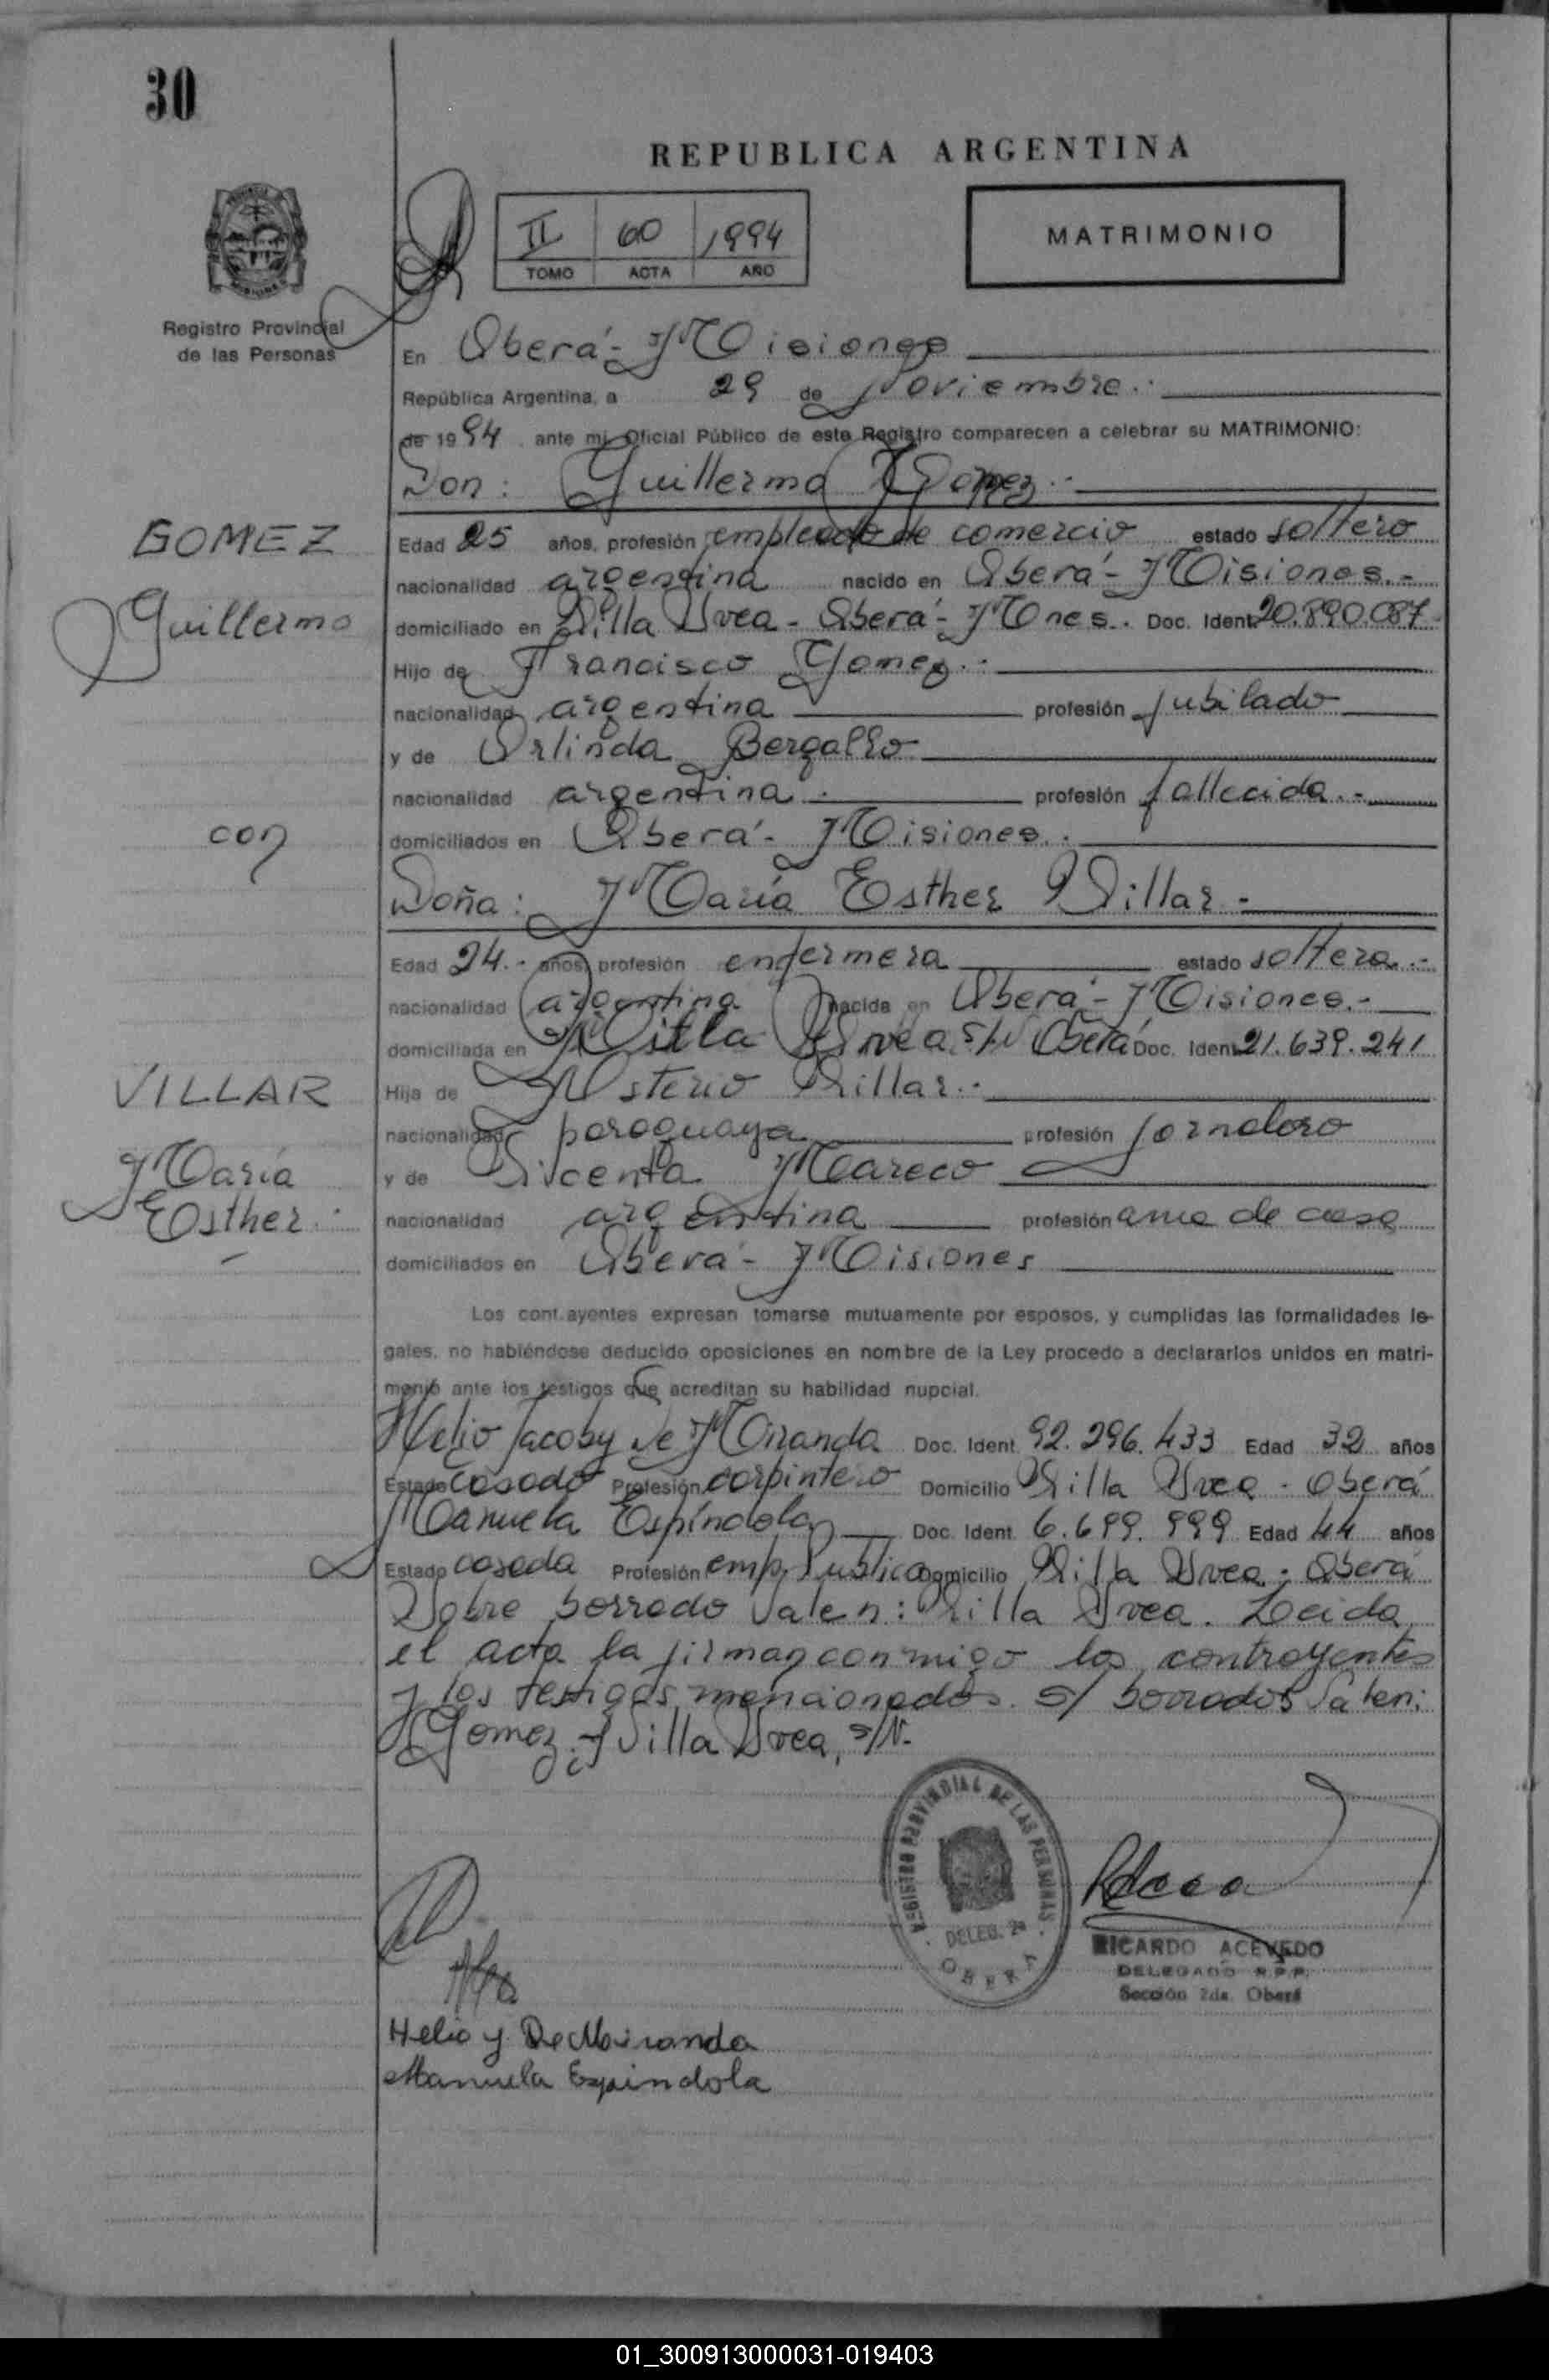 30
REPUBLICA ARGENTINA
II 60 1994
TOMO ACTA AÑO
MATRIMONIO
Registro Provincial
de las Personas
En Oberá - Misiones
República Argentina, a 29 de Noviembre.
de 1994 ante mi, Oficial Público de este Registro comparecen a celebrar su MATRIMONIO:
Don: Guillermo Gomez
GOMEZ
Guillermo
con
VILLAR
María
Esther
Edad 25 años, profesión empleado de comercio estado soltero
nacionalidad argentina nacido en Oberá - Misiones.-
domiciliado en Villa Svea - Oberá - Mnes. Doc. Ident 20.890.087
Hijo de Francisco Gomez
nacionalidad argentina profesión jubilado
y de Orlinda Bergallo
nacionalidad argentina profesión fallecida.-
domiciliados en Oberá - Misiones.
Doña: María Esther Villar -
Edad 24.- años, profesión enfermera estado soltera.-
nacionalidad argentina nacida en Oberá - Misiones.-
domiciliada en Villa Svea s/N Oberá Doc. Ident 21.639.241
Hija de Asterio Villar
nacionalidad paraguaya profesión jornalero
y de Vicenta Mareco
nacionalidad argentina profesión ama de casa
domiciliados en Oberá - Misiones
Los contrayentes expresan tomarse mutuamente por esposos, y cumplidas las formalidades le-
gales, no habiéndose deducido oposiciones en nombre de la Ley procedo a declararlos unidos en matri-
monio ante los testigos que acreditan su habilidad nupcial.
Helio Jacoby de Miranda Doc. Ident. 92.296.433 Edad 32 años
Estado casado Profesión carpintero Domicilio Villa Svea - Oberá
Manuela Espíndola Doc. Ident. 6.699.999 Edad 44 años
Estado casada Profesión emp. Publica Domicilio Villa Svea - Oberá
Sobre borrado Valen: Villa Svea. Leida
el acta la firman conmigo los contrayentes
y los testigos mencionados. s/ borrados Valen:
Gomez y Villa Svea, s/N.
REGISTRO PROVINCIAL DE LAS PERSONAS
DELEG. 2ª
OBERA
RICARDO ACEVEDO
DELEGADO R.P.P.
Sección 2da. Oberá
Helio y De Miranda
Manuela Espindola
01_300913000031-019403